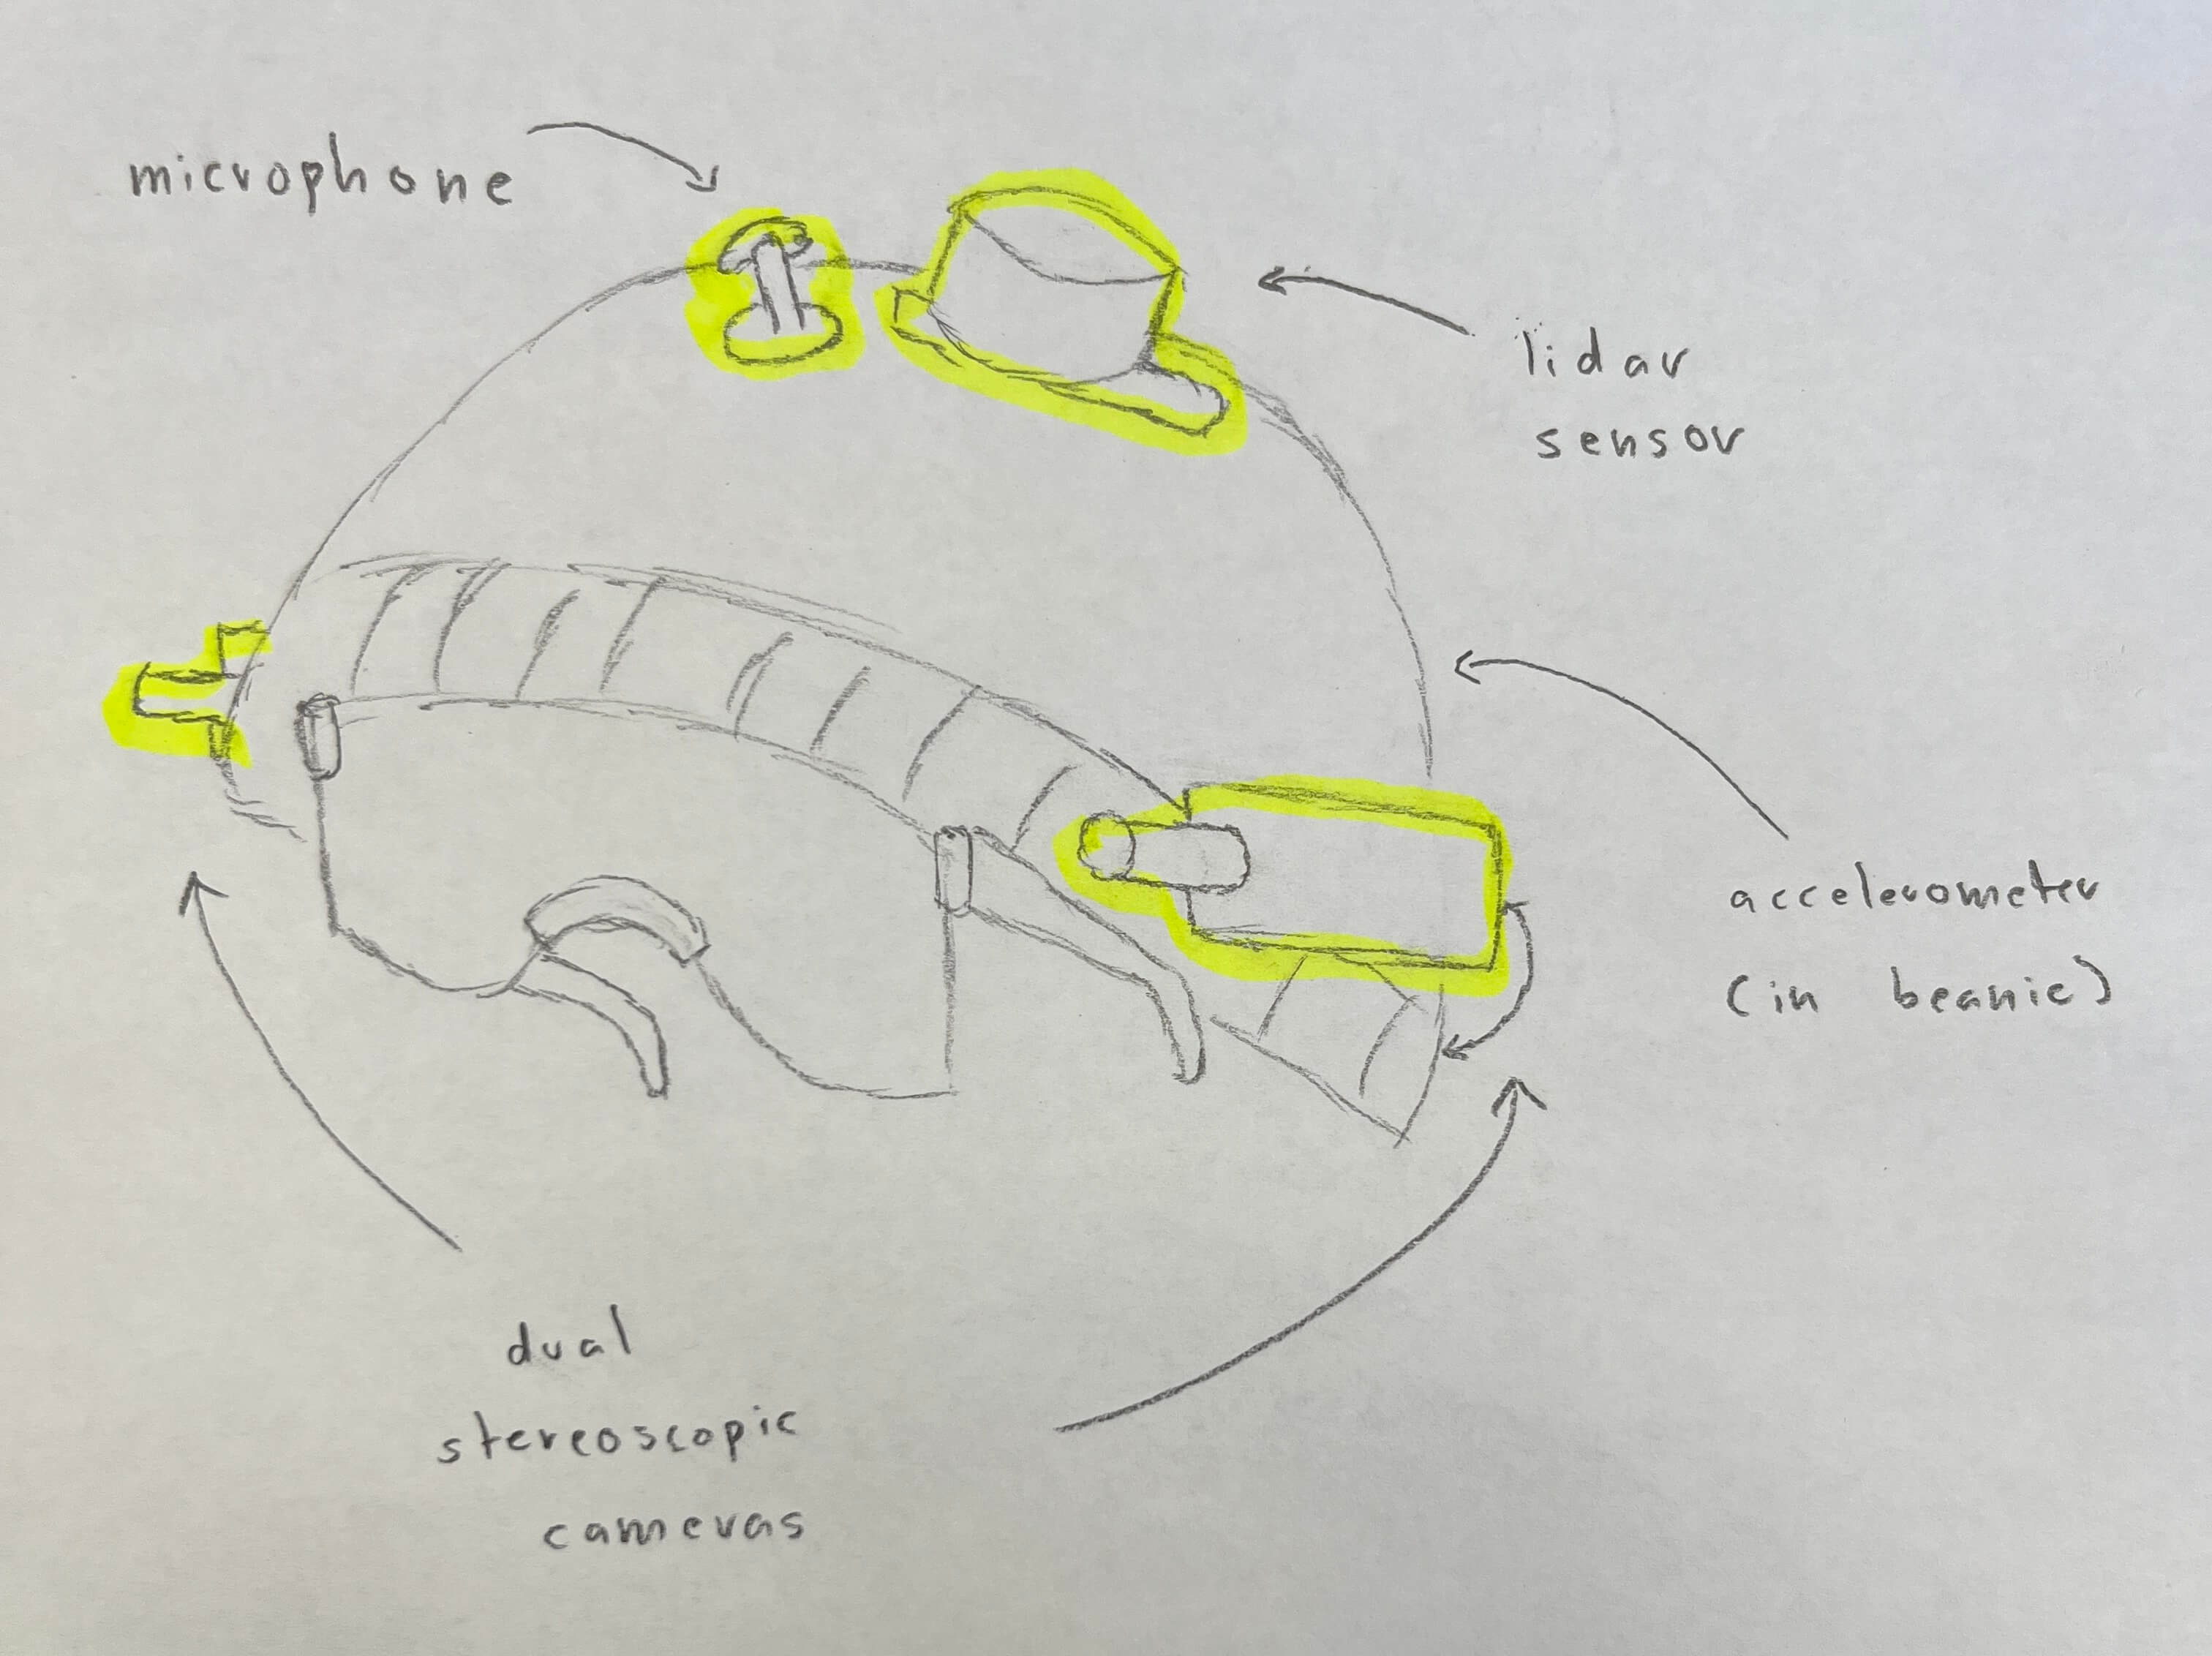 microphone
lidar
sensor
accelerometer
(in beanie)
dual
stereoscopic
cameras